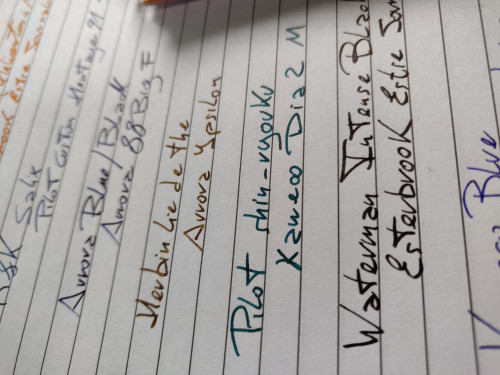 Estie
R&K Salix
Pilot Custom Heritage 91
Aurora Blue/Black
Aurora 88 Big F
Herbin Lie de the
Aurora Ypsilon
Pilot shin-ryouku
Kaweco Dia2 M
Waterman Intense Black
Esterbrook Estie
Blue